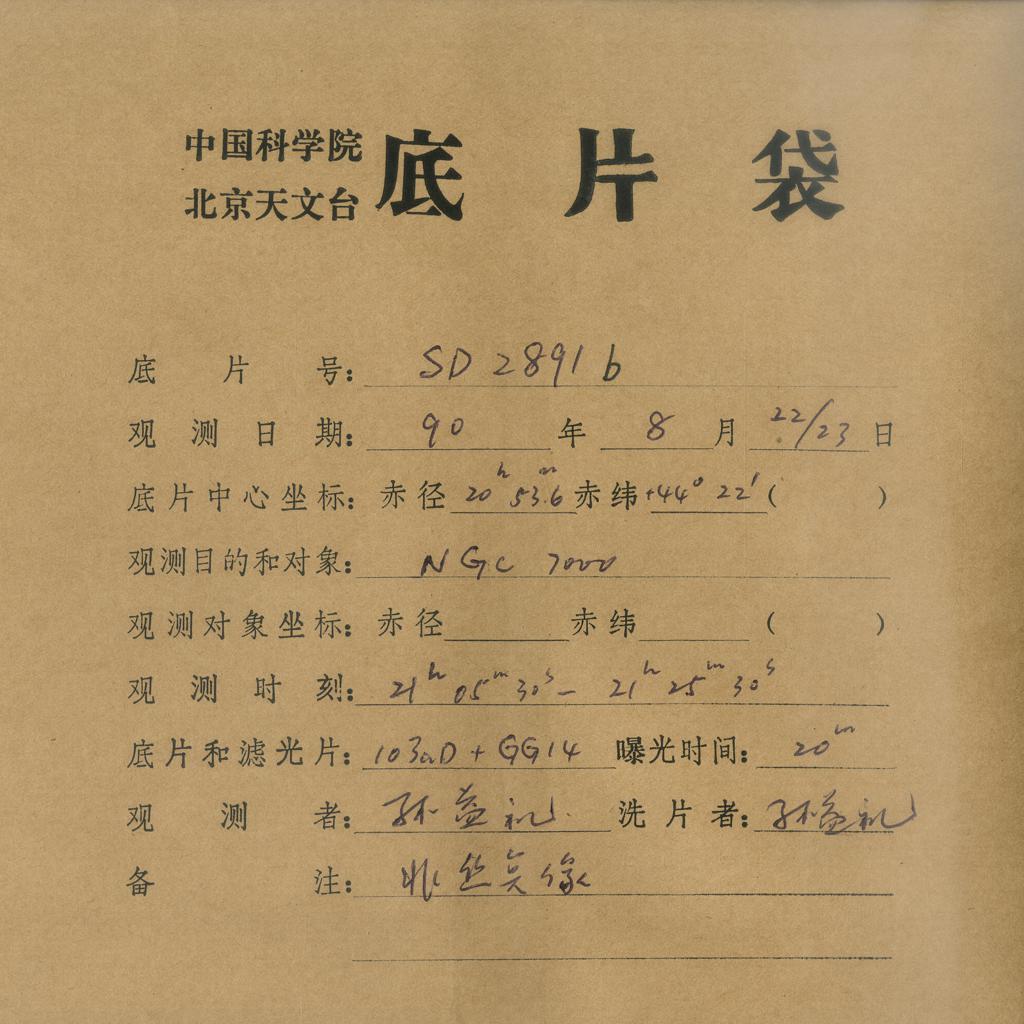 中国科学院
北京天文台
底片袋
底片号：SD 2891 b
观测日期：90年8月22/23日
底片中心坐标：赤径20ʰ53.ᵐ6赤纬+44°22′（ ）
观测目的和对象：NGC 7000
观测对象坐标：赤径 赤纬 （ ）
观测时刻：21ʰ05ᵐ30ˢ－21ʰ25ᵐ30ˢ
底片和滤光片：103aD+GG14 曝光时间：20ᵐ
观测者：孙益礼 洗片者：孙益礼
备注：